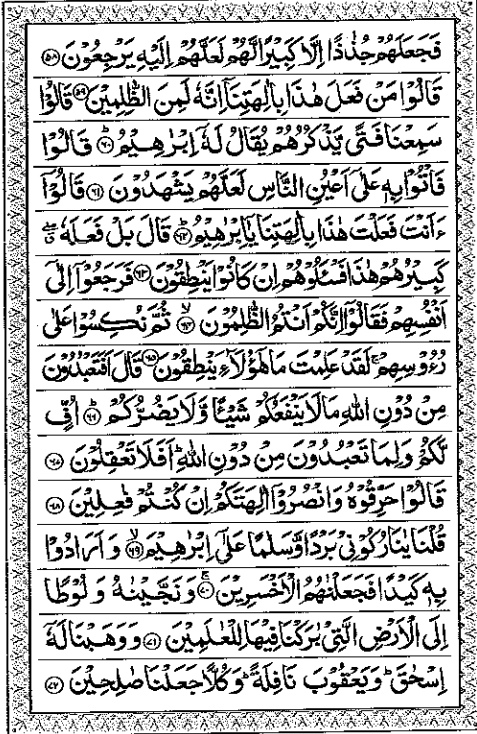 فَجَعَلَهُمْ جُذٰذًا اِلَّا كَبِيْرًا لَّهُمْ لَعَلَّهُمْ اِلَيْهِ يَرْجِعُوْنَ ۝۵۸
قَالُوْا مَنْ فَعَلَ هٰذَا بِاٰلِهَتِنَاۤ اِنَّهٗ لَمِنَ الظّٰلِمِيْنَ ۝۵۹ قَالُوْا
سَمِعْنَا فَتًى يَّذْكُرُهُمْ يُقَالُ لَهٗۤ اِبْرٰهِيْمُ ؕ۝۶۰ قَالُوْا
فَاْتُوْا بِهٖ عَلٰۤى اَعْيُنِ النَّاسِ لَعَلَّهُمْ يَشْهَدُوْنَ ۝۶۱ قَالُوْۤا
ءَاَنْتَ فَعَلْتَ هٰذَا بِاٰلِهَتِنَا يٰۤاِبْرٰهِيْمُ ؕ۝۶۲ قَالَ بَلْ فَعَلَهٗ ۖۗ
كَبِيْرُهُمْ هٰذَا فَسْـَٔلُوْهُمْ اِنْ كَانُوْا يَنْطِقُوْنَ ۝۶۳ فَرَجَعُوْۤا اِلٰۤى
اَنْفُسِهِمْ فَقَالُوْۤا اِنَّكُمْ اَنْتُمُ الظّٰلِمُوْنَ ۙ۝۶۴ ثُمَّ نُكِسُوْا عَلٰى
رُءُوْسِهِمْ ۚ لَقَدْ عَلِمْتَ مَا هٰۤؤُلَآءِ يَنْطِقُوْنَ ۝۶۵ قَالَ اَفَتَعْبُدُوْنَ
مِنْ دُوْنِ اللّٰهِ مَا لَا يَنْفَعُكُمْ شَيْـًٔا وَّلَا يَضُرُّكُمْ ؕ۝۶۶ اُفٍّ
لَّكُمْ وَلِمَا تَعْبُدُوْنَ مِنْ دُوْنِ اللّٰهِ ؕ اَفَلَا تَعْقِلُوْنَ ۝۶۷
قَالُوْا حَرِّقُوْهُ وَانْصُرُوْۤا اٰلِهَتَكُمْ اِنْ كُنْتُمْ فٰعِلِيْنَ ۝۶۸
قُلْنَا يٰنَارُ كُوْنِيْ بَرْدًا وَّسَلٰمًا عَلٰۤى اِبْرٰهِيْمَ ۙ۝۶۹ وَاَرَادُوْا
بِهٖ كَيْدًا فَجَعَلْنٰهُمُ الْاَخْسَرِيْنَ ۚ۝۷۰ وَنَجَّيْنٰهُ وَلُوْطًا
اِلَى الْاَرْضِ الَّتِيْ بٰرَكْنَا فِيْهَا لِلْعٰلَمِيْنَ ۝۷۱ وَوَهَبْنَا لَهٗۤ
اِسْحٰقَ ؕ وَيَعْقُوْبَ نَافِلَةً ؕ وَكُلًّا جَعَلْنَا صٰلِحِيْنَ ۝۷۲